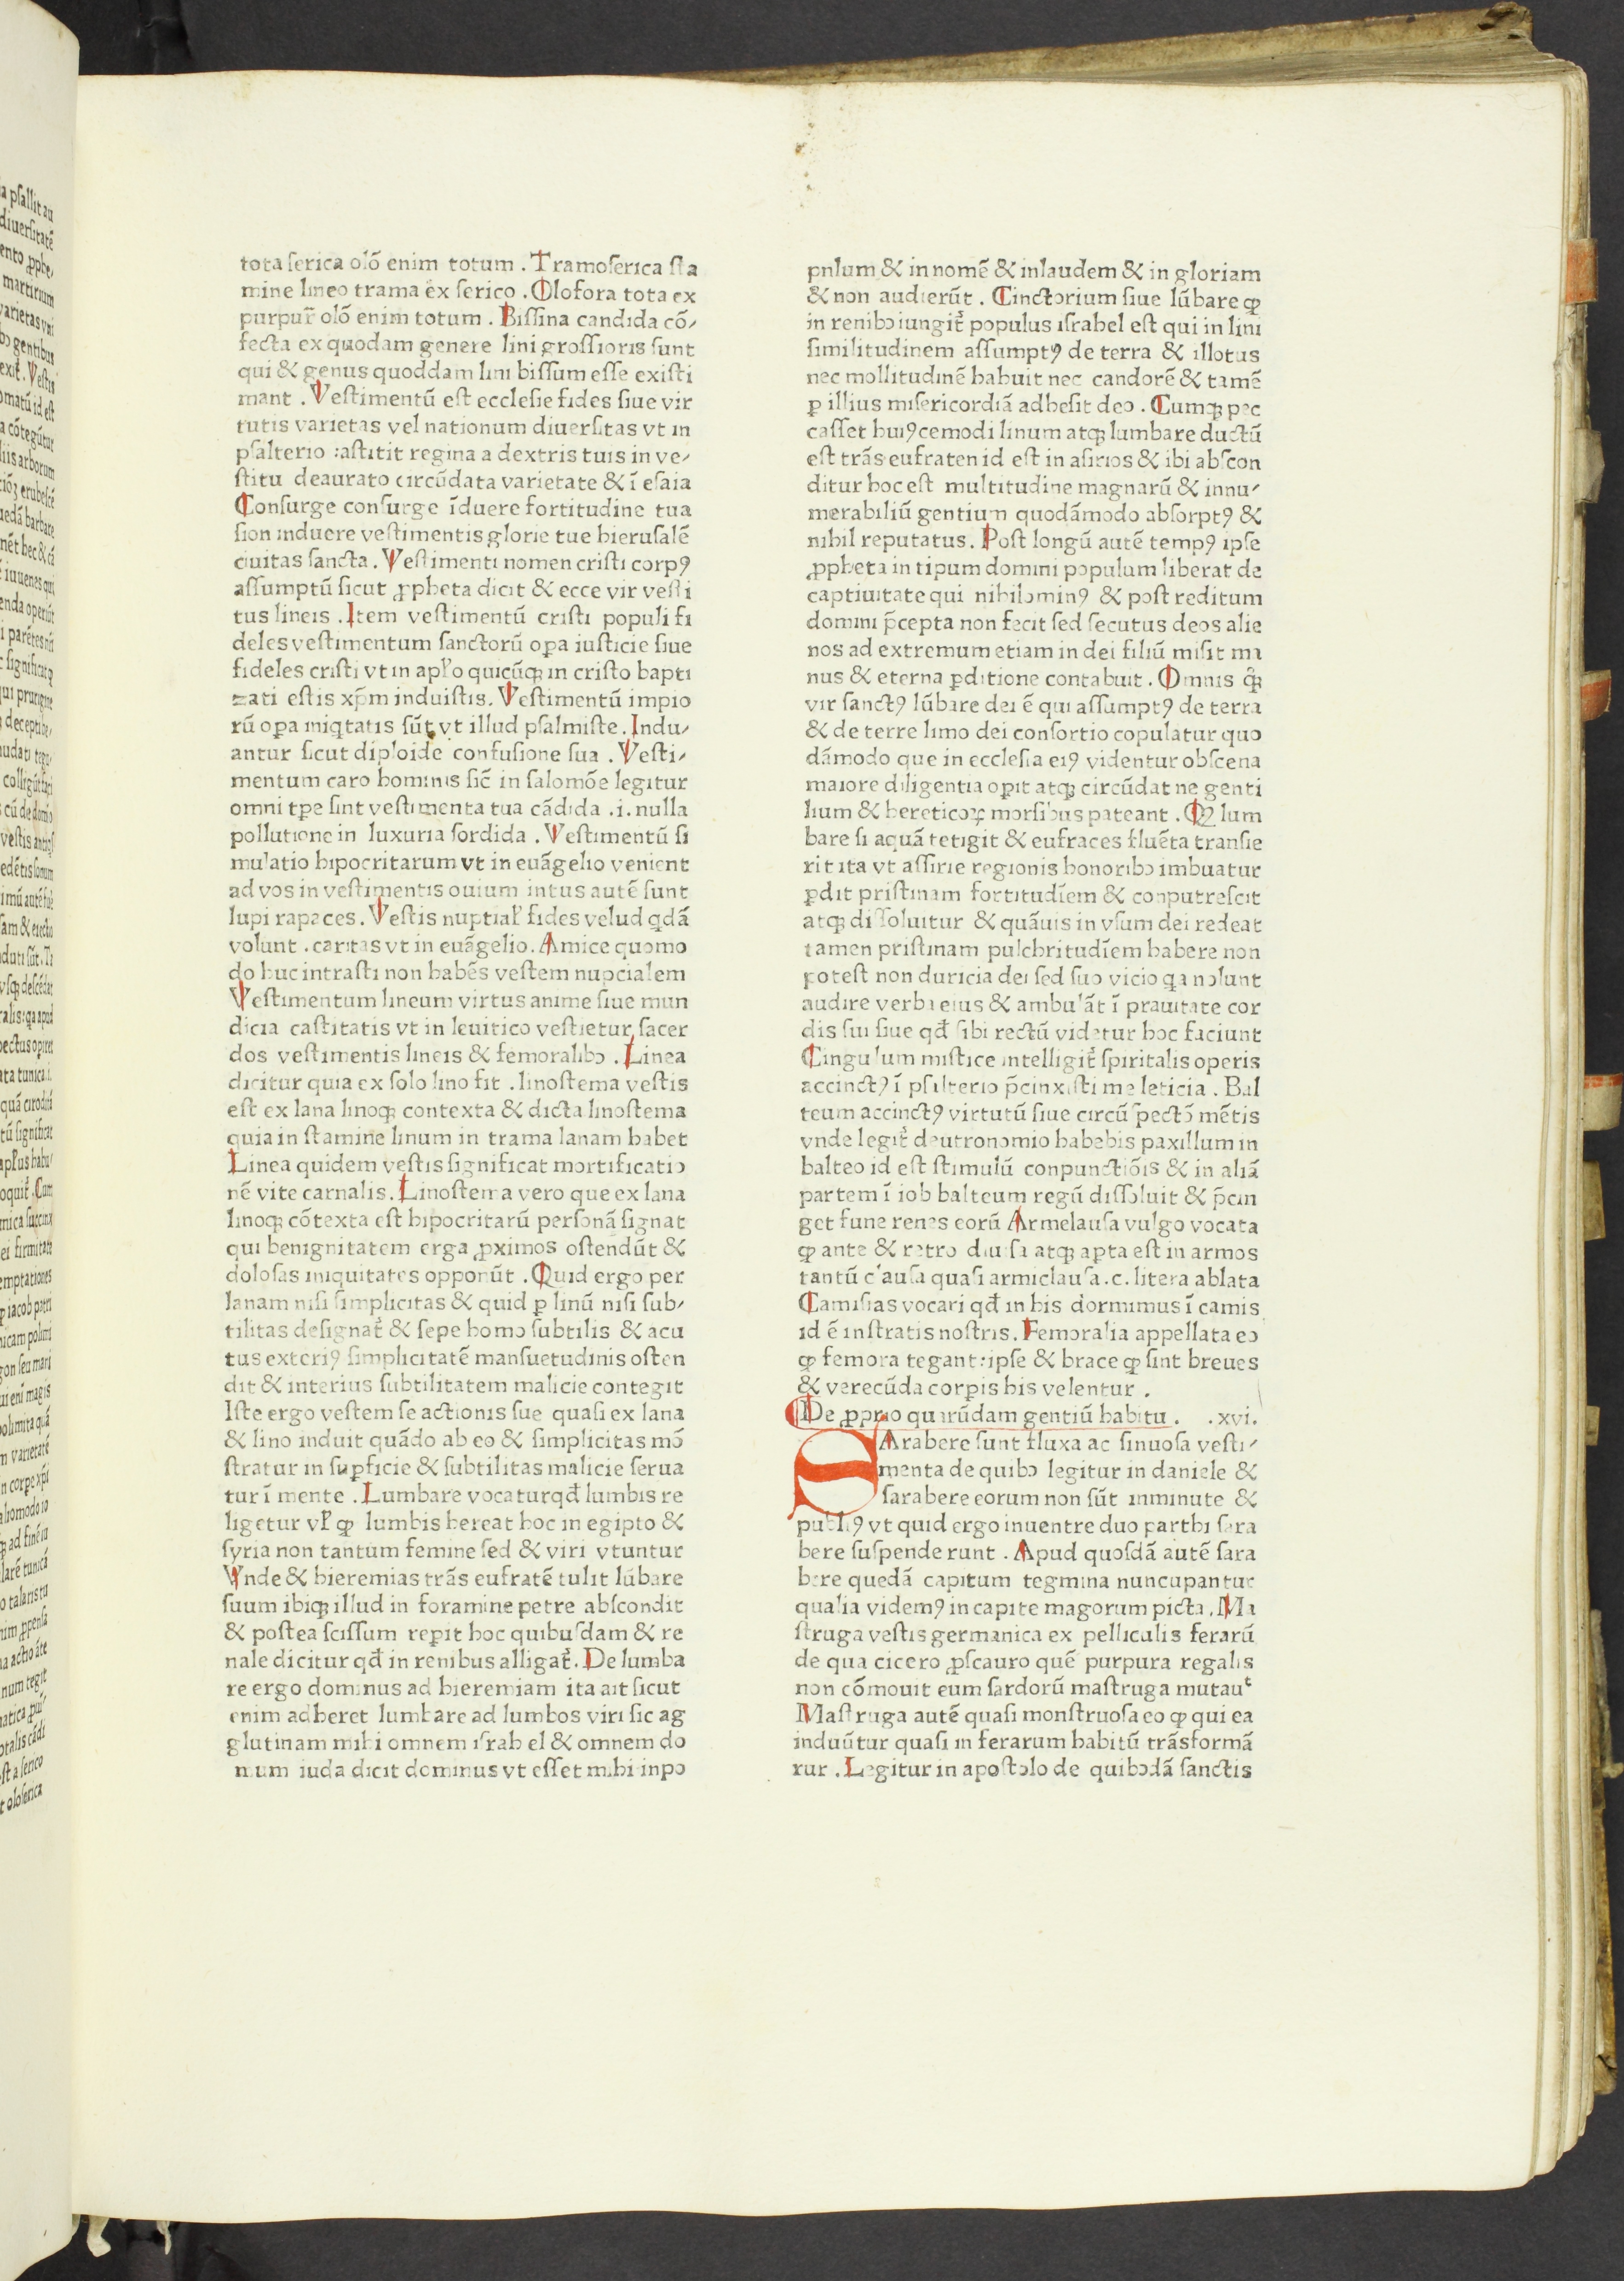 tota ſerica olō enim totum . Tramoſerica ſta
mine lineo trama ex ſerico . Olofora tota ex
purpur̄ olō enim totum . Biſſina candida cō⸗
fecta ex quodam genere lini groſſioris ſunt
qui & genus quoddam lini biſſum eſſe exiſti
mant . Veſtimentū eſt eccleſie fides ſiue vir
tutis varietas vel nationum diuerſitas vt in
pſalterio :aſtitit regina a dextris tuis in ve⸗
ſtitu deaurato circūdata varietate & ī eſaia
Conſurge conſurge īduere fortitudine tua
ſion induere veſtimentis glorie tue hieruſalē
ciuitas ſancta . Veſtimenti nomen criſti corpꝯ
aſſumptū ſicut ꝓpheta dicit & ecce vir veſti
tus lineis . Item veſtimentū criſti populi fi
deles veſtimentum ſanctorū oꝑa iuſticie ſiue
fideles criſti vt in apl'o quicūqꝫ in criſto bapti
zati eſtis xp̄m induiſtis. Veſtimentū impio
rū oꝑa iniq̄tatis ſūt vt illud pſalmiſte . Indu⸗
antur ſicut diploide confuſione ſua . Veſti⸗
mentum caro hominis ſic̄ in ſalomōe legitur
omni tꝑe ſint veſtimenta tua cādida .i. nulla
pollutione in luxuria ſordida . Veſtimentū ſi
mulatio hipocritarum vt in euāgelio venient
ad vos in veſtimentis ouium intus autē ſunt
lupi rapaces . Veſtis nuptial' fides velud q̄dā
volunt . caritas vt in euāgelio. Amice quomo
do huc intraſti non habēs veſtem nupcialem
Veſtimentum lineum virtus anime ſiue mun
dicia caſtitatis vt in leuitico veſtietur ſacer
dos veſtimentis lineis & femoralibꝰ . Linea
dicitur quia ex ſolo lino fit . linoſtema veſtis
eſt ex lana linoqꝫ contexta & dicta linoſtema
quia in ſtamine linum in trama lanam habet
Linea quidem veſtis ſignificat mortificatio
nē vite carnalis. Linoſtema vero que ex lana
linoqꝫ cōtexta eſt hipocritarū perſonā ſignat
qui benignitatem erga ꝓximos oſtendūt &
doloſas iniquitates opponūt . Quid ergo per
lanam niſi ſimplicitas & quid ꝑ linū niſi ſub⸗
tilitas deſignat̉ & ſepe homo ſubtilis & acu
tus exteriꝯ ſimplicitatē manſuetudinis oſten
dit & interius ſubtilitatem malicie contegit
Iſte ergo veſtem ſe actionis ſue quaſi ex lana
& lino induit quādo ab eo & ſimplicitas mō
ſtratur in ſuꝑficie & ſubtilitas malicie ſerua
tur ī mente . Lumbare vocatur qđ lumbis re
ligetur vl' ꝙ lumbis hereat hoc in egipto &
ſyria non tantum femine ſed & viri vtuntur
Vnde & hieremias trās eufratē tulit lūbare
ſuum ibiqꝫ illud in foramine petre abſcondit
& poſtea ſciſſum reꝑit hoc quibuſdam & re
nale dicitur qđ in renibus alligat̉. De lumba
re ergo dominus ad hieremiam ita ait ſicut
enim adheret lumbare ad lumbos viri ſic ag
glutinam mihi omnem iſrahel & omnem do
mum iuda dicit dominus vt eſſet mihi inpo
pnlum & in nomē & inlaudem & in gloriam
& non audierūt . Cinctorium ſiue lūbare ꝙ
in renibꝰ iungit̉ populus iſrahel eſt qui in lini
ſimilitudinem aſſumptꝯ de terra & illotus
nec mollitudinē habuit nec candorē & tamē
ꝑ illius miſericordiā adheſit deo . Cumqꝫ pec
caſſet huiꝯcemodi linum atqꝫ lumbare ductū
eſt trās eufraten id eſt in aſirios & ibi abſcon
ditur hoc eſt multitudine magnarū & innu⸗
merabiliū gentium quodāmodo abſorptꝯ &
nihil reputatus . Poſt longū autē tempꝯ ipſe
ꝓpheta in tipum domini populum liberat de
captiuitate qui nihilominꝯ & poſt reditum
domini p̄cepta non fecit ſed ſecutus deos alie
nos ad extremum etiam in dei filiū miſit ma
nus & eterna ꝑditione contabuit . Omnis q̉ꝫ
vir ſanctꝯ lūbare dei ē qui aſſumptꝯ de terra
& de terre limo dei conſortio copulatur quo
dāmodo que in eccleſia eiꝯ videntur obſcena
maiore diligentia oꝑit atqꝫ circūdat ne genti
lium & hereticoꝝ morſibus pateant . Qꝫ lum
bare ſi aquā tetigit & eufraces fluēta tranſie
rit ita vt aſſirie regionis honoribꝰ imbuatur
ꝑdit priſtinam fortitudīem & conputreſcit
atqꝫ diſſoluitur & quāuis in vſum dei redeat
tamen priſtinam pulchritudīem habere non
poteſt non duricia dei ſed ſuo vicio q̄a nolunt
audire verba eius & ambulāt ī prauitate cor
dis ſui ſiue qđ ſibi rectū videtur hoc faciunt
Cingulum miſtice intelligit̉ ſpiritalis operis
accinctꝯ ī pſalterio p̄cinxiſti me leticia . Bal
teum accinctꝯ virtutū ſiue circū ſpectō mētis
vnde legit̉ deutronomio habebis paxillum in
balteo id eſt ſtimulū conpunctiōis & in aliā
partem ī iob balteum regū diſſoluit & p̄cin
get fune renes eorū Armelauſa vulgo vocata
ꝙ ante & retro diuiſa atqꝫ apta eſt in armos
tantū clauſa quaſi armiclauſa .c. litera ablata
Camiſias vocari qđ in his dormimus ī camis
id ē in ſtratis noſtris. Femoralia appellata eo
ꝙ femora tegant:ipſe & brace ꝙ ſint breues
& verecūda corꝑis his velentur .
De ꝓprio quarūdam gentiū habitu . .xvi.
SArabere ſunt fluxa ac ſinuoſa veſti⸗
menta de quibꝰ legitur in daniele &
ſarabere eorum non ſūt inminute &
publiꝯ vt quid ergo inuentre duo parthi ſara
bere ſuſpende runt . Apud quoſdā autē ſara
bere quedā capitum tegmina nuncupantur
qualia videmꝯ in capite magorum picta . Ma
ſtruga veſtis germanica ex pelliculis ferarū
de qua cicero ꝓſcauro quē purpura regalis
non cōmouit eum ſardorū maſtruga mutauᵗ
Maſtruga autē quaſi monſtruoſa eo ꝙ qui ea
induūtur quaſi in ferarum habitū trāsformā
rur . Legitur in apoſtolo de quibꝰdā ſanctis